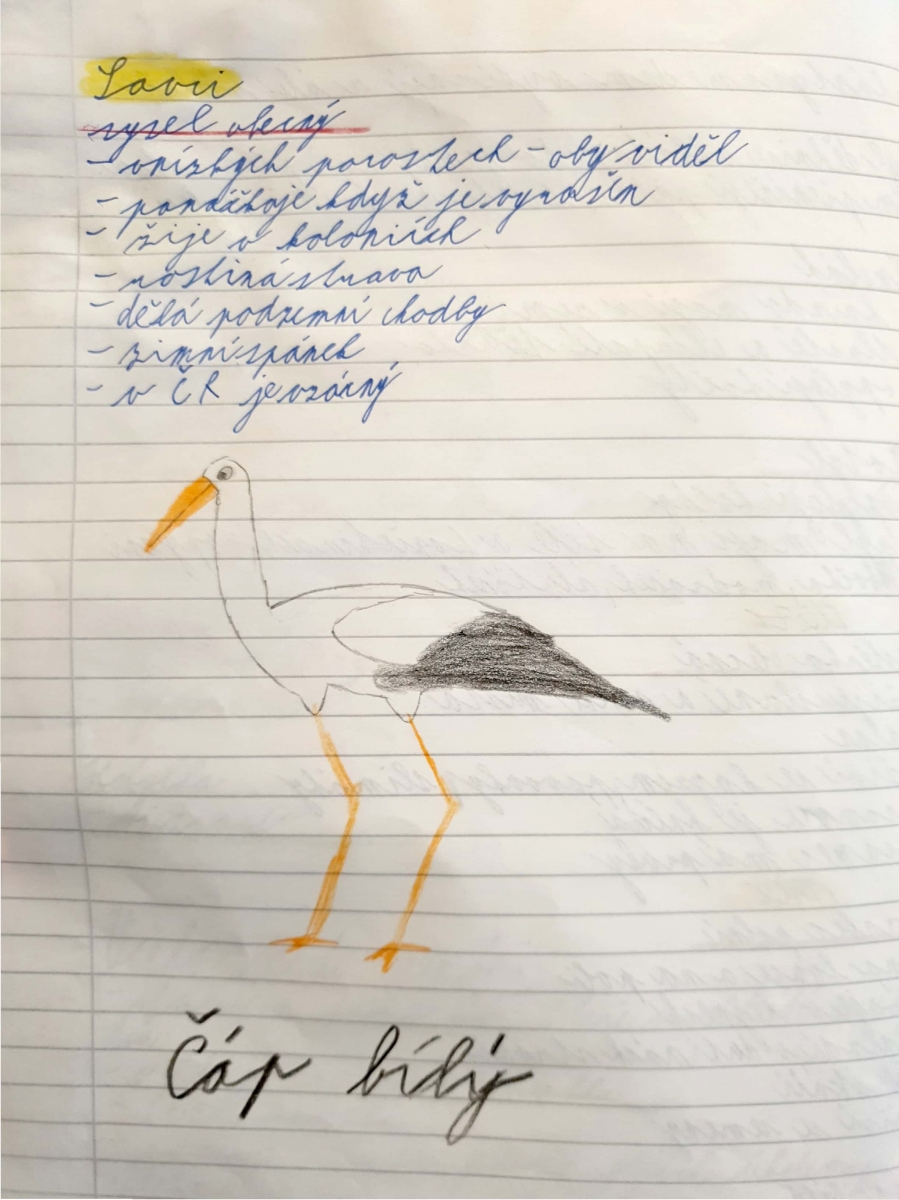 Savci
sysel obecný
- v nízkých porostech - aby viděl
- panáčkuje když je vyrušen
- žije v koloniích
- rostliná strava
- dělá podzemní chodby
- zimní spánek
- v ČR je vzácný
Čáp bílý